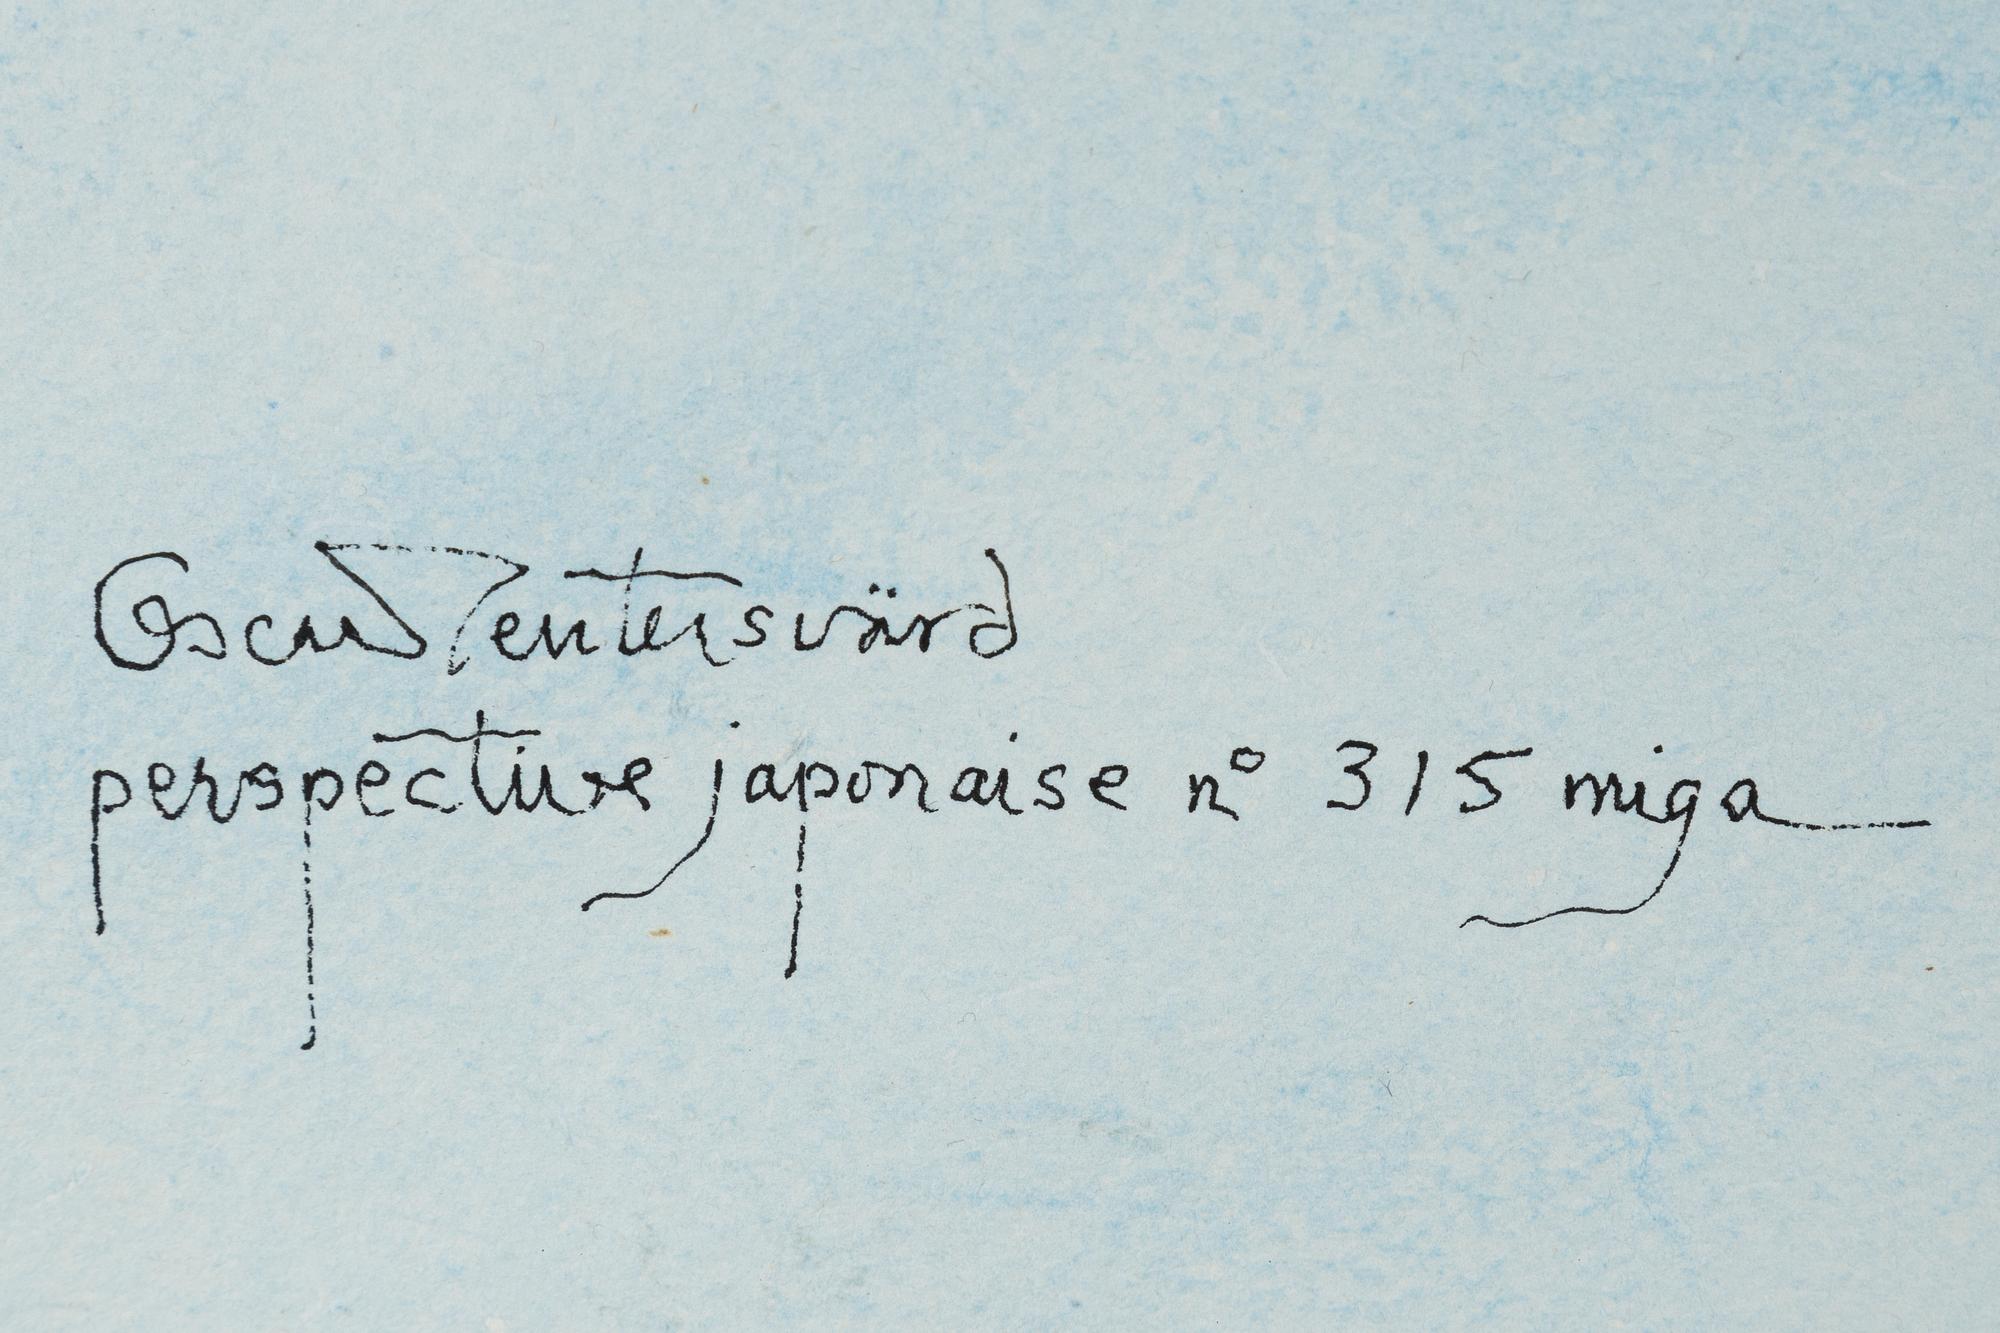 Oscar Reutersvärd
perspective japonaise nº 315 miga